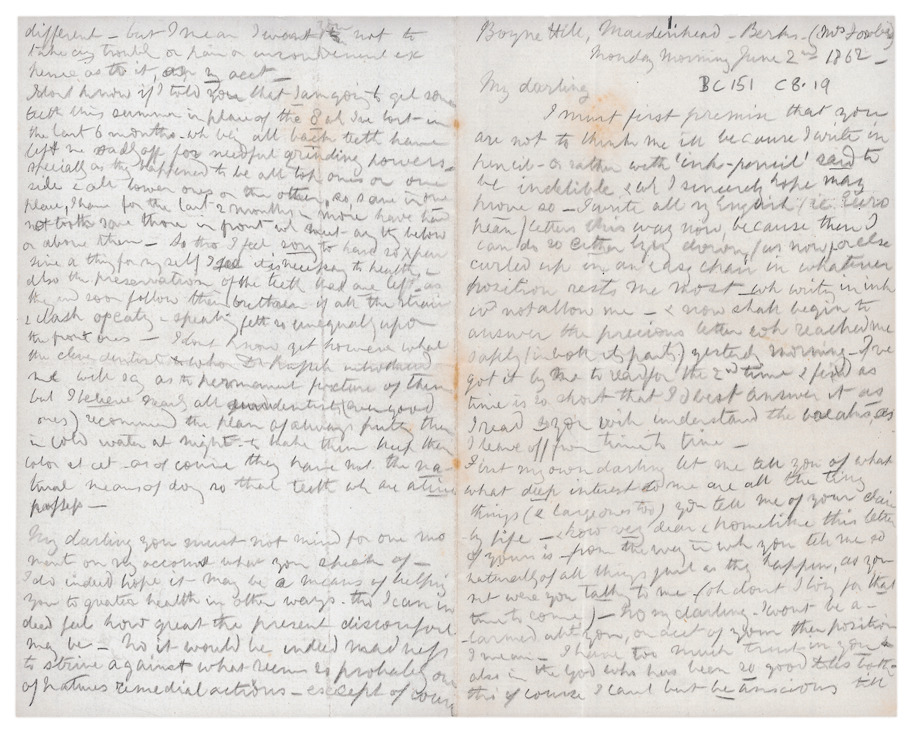 Boyne Hill, Maidenhead - Berks - (Mrs
Monday Morning June 2nd 1862 -
BC 151 CB. 19
My darling
I must first premise that you
are not to think me ill because I write in
pencil - or rather with 'ink-pencil' said to
be indelible & wh I sincerely hope may
prove so - I write all my English (ie. Euro
pean) letters this way now, because then I
can do so either lying down, (as now) or else
curled up in an easy chair in whatever
position rests me most - wh write in ink
wd not allow me - & now shall begin to
answer the precious letter wh reached me
safely (in both its parts) yesterday morning - I've
got it by me to read for the 2nd time & find as
time is so short that I'd best answer it as
I read & you will understand the breaks, as
I leave off from time to time -
1st my own darling let me tell you of what
what deep interest to me are all the tiny
things (& large ones too) you tell me of your dai
ly life - & how very dear & homelike this letter
of yours is - from the way in wh you tell me so
naturally of all things just as they happen, as you
met were you talking to me - (oh dont I long for that
time to come) - No my darling - I wont be a-
larmed abt you, or act of your then position
I mean - I have too much trust in you &
also in the God who has been so good to us both -
tho' of course I cant but be anxious till
different - but I mean I want not to
take any trouble or pain or inconvenient ex
pense as to it, on my acct -
I dont know if I told you that I am going to get some
teeth this summer in place of the 8 I've lost - in
the last 6 months - wh bei all back teeth have
left me sadly off for needful grinding powers -
specially as they happened to be all top ones on one
side & all lower ones on the other, so save in one
place, I have for the last 2 months & more have had
not tooth save those in front wh meet any th below
or above them - So tho I feel sorry to have so expen
sive a thing for my self I feel it is necessary to health, &
also the preservation of the teeth that are left, as
they wd soon follow their brethren if all the strain
& clash of eatg - speakg fell so unequally upon
the front ones - I dont know yet however what
the clever dentist to whom Dr introduced
me will say as to the permanent fixture of them
but I believe nearly all dentists (even good
ones) recommend the plan of always putg them
in cold water at night - to make them keep their
color et cet - as of course they have not the na
tural means of doing so that teeth wh are alive
possess -
My darling you must not mind for one mo
ment on my account what you speak of -
I do indeed hope it may be a means of helping
you to greater health in other ways - tho I can in
deed feel how great the present discomfort
may be - No it would be indeed madness
to strive against what seems so probably one
of natures remedial actions - except of cour